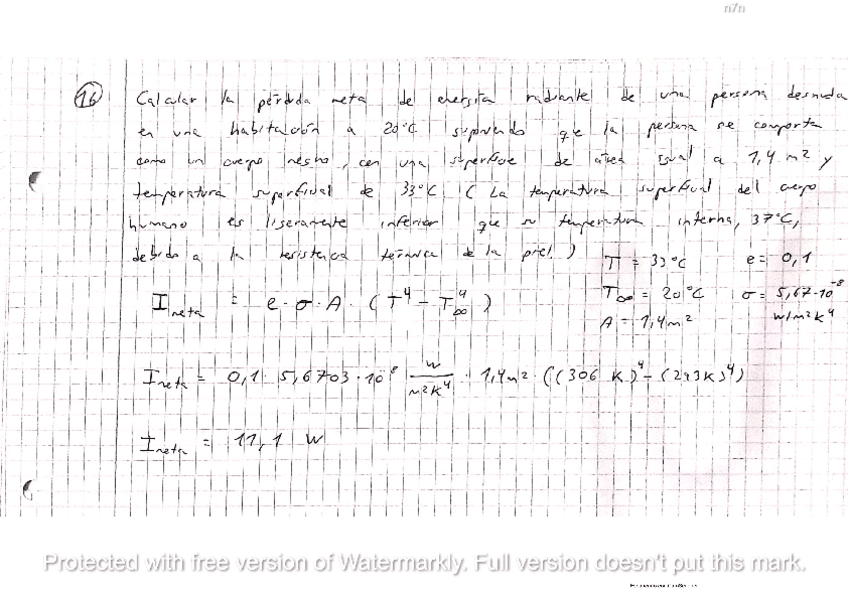 n7n
16 Calcular la pérdida neta de energía radiante de una persona desnuda
en una habitación a 20°C suponiendo que la persona se comporta
como un cuerpo negro, con una superficie de área igual a 1,4 m² y
temperatura superficial de 33°C (La temperatura superficial del cuerpo
humano es ligeramente inferior que su temperatura interna, 37°C,
debido a la resistencia térmica de la piel)
T = 33°C e = 0,1
T∞ = 20°C σ = 5,67·10⁻⁸
A = 1,4 m² W/m²K⁴
I neta = e · σ · A · (T⁴ - T∞⁴)
I neta = 0,1 · 5,6703 · 10⁻⁸ W/m²K⁴ · 1,4 m² · ((306 K)⁴ - (293K)⁴)
I neta = 11,1 W
Protected with free version of Watermarkly. Full version doesn't put this mark.